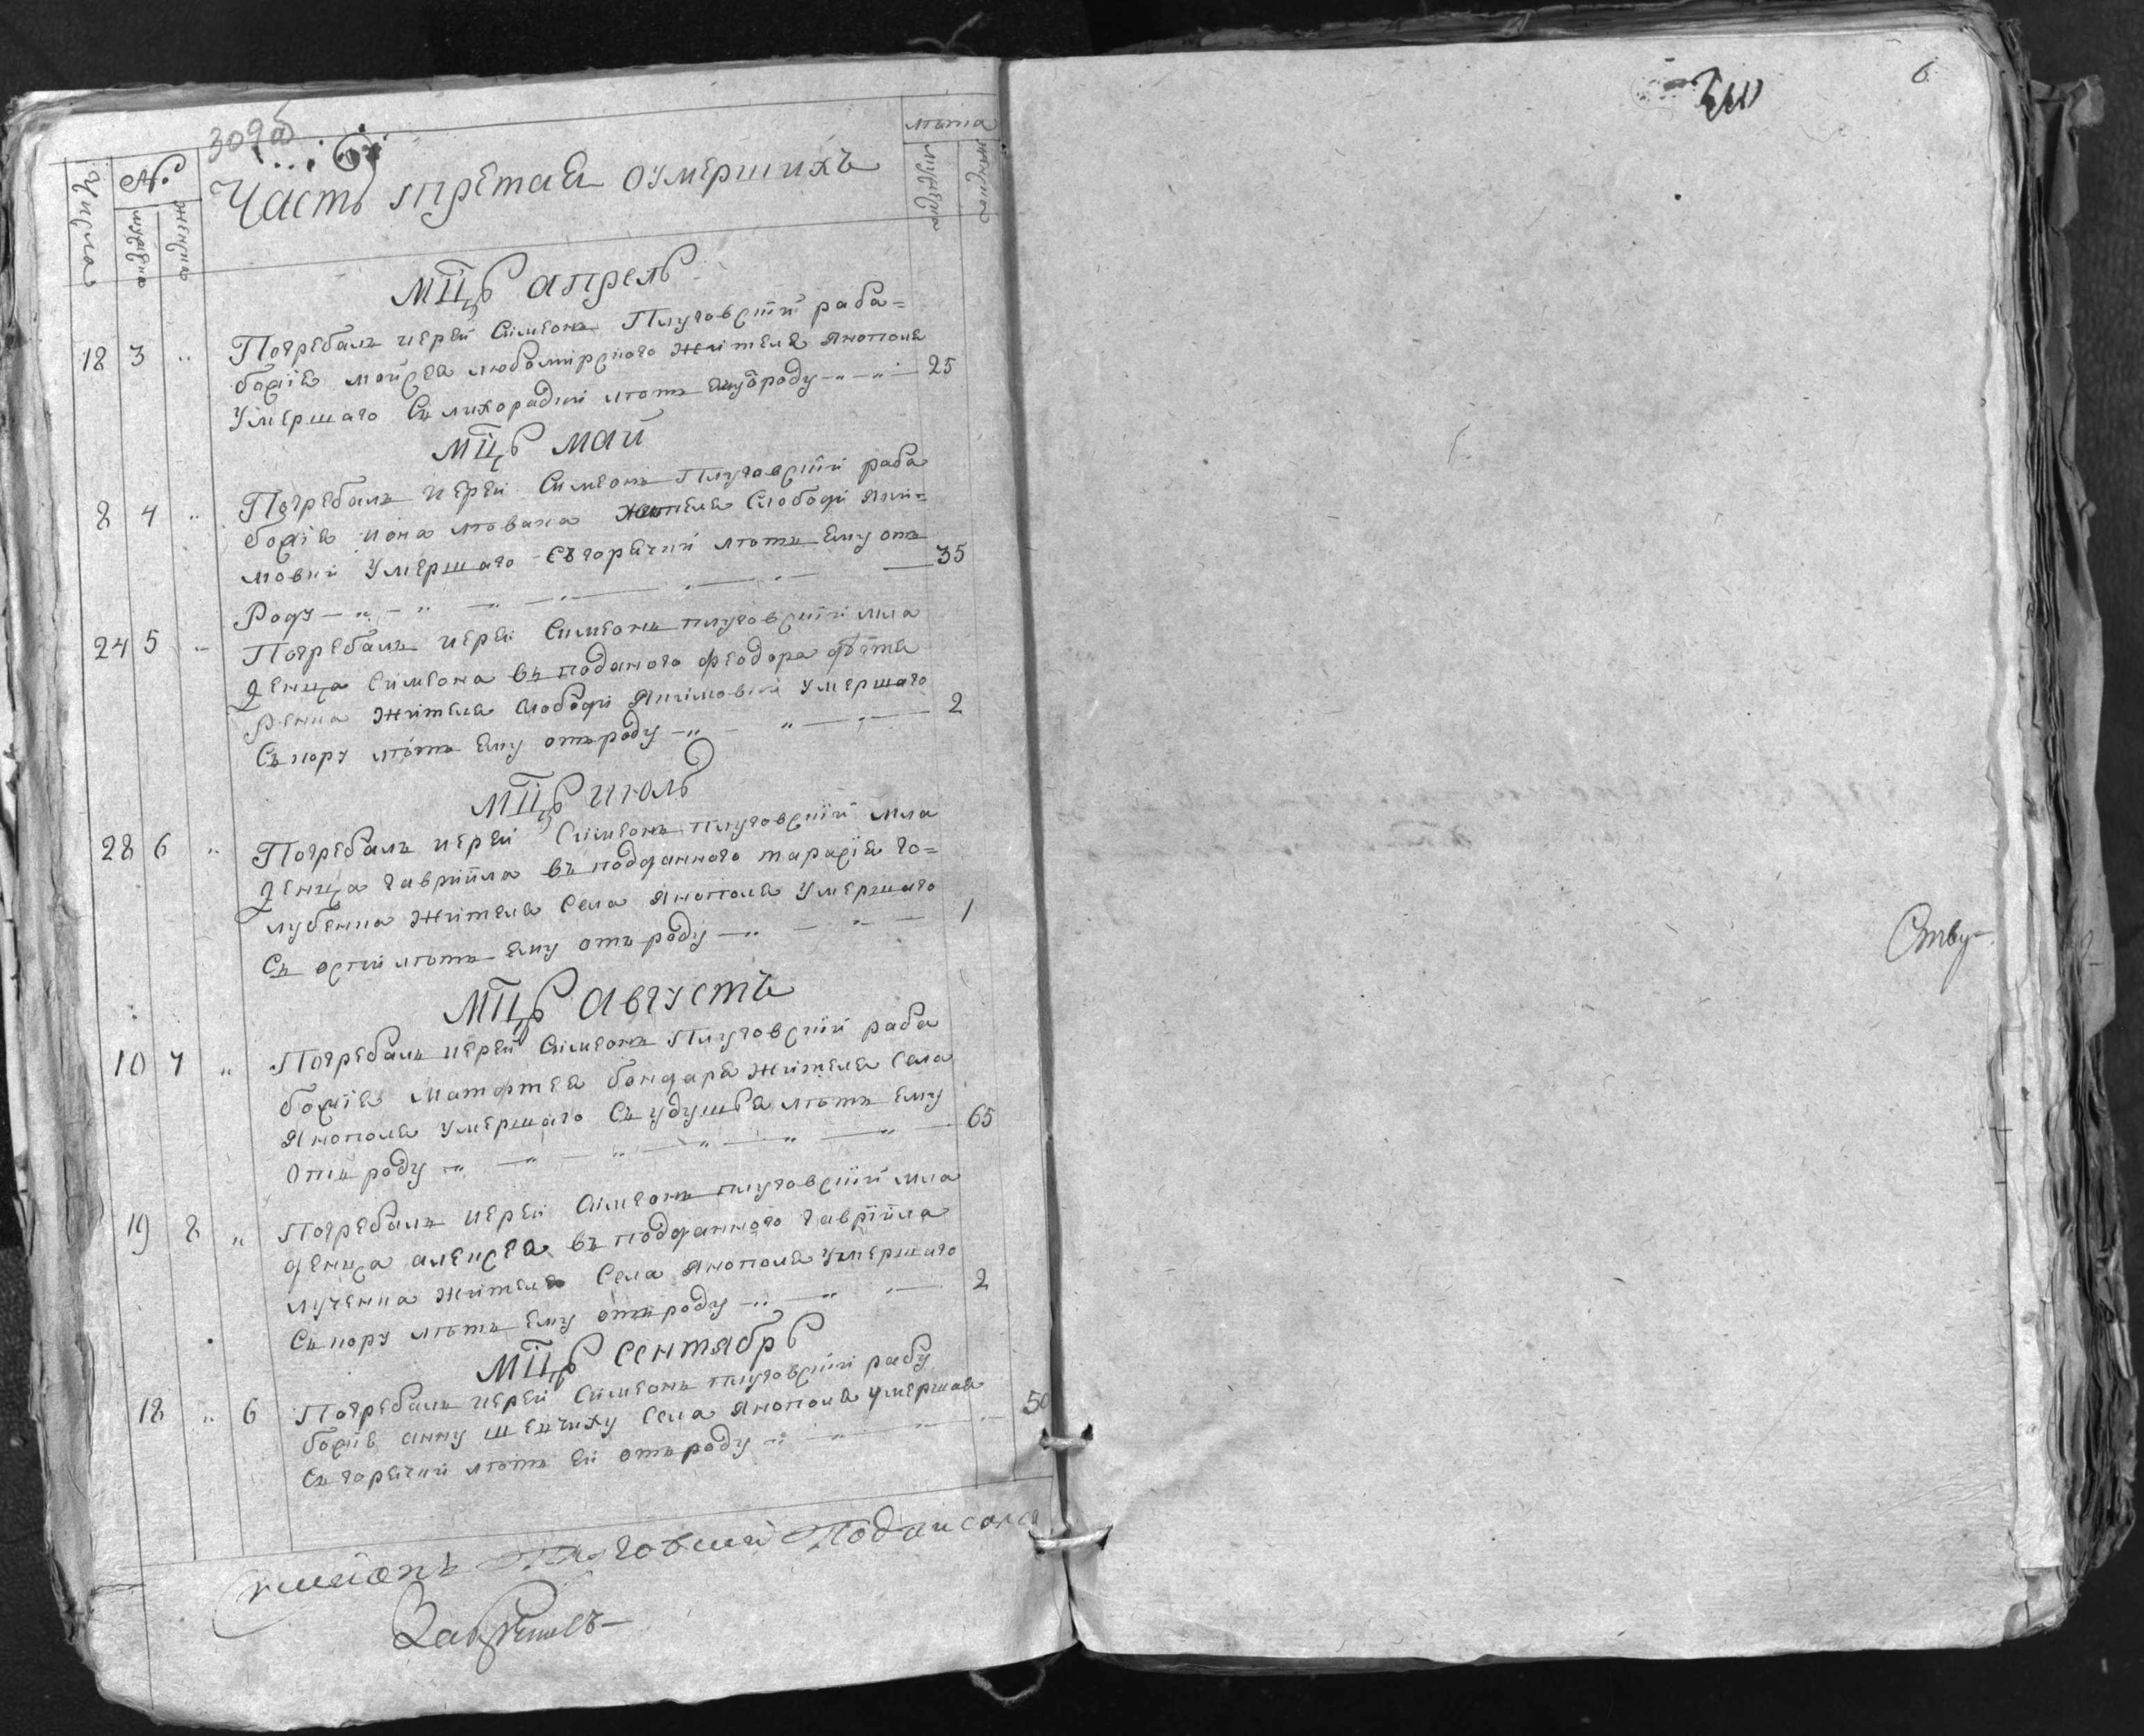 309об
6
Числа
№
мужеска
женска
Часть третая оумершихъ
лѣта
мужеска
женска
Мцъ апрель
18 3 „ Погребалъ иерей Симеонъ Плуговскій раба=
божія мойсея любомирского жителя Янополя
Умершаго Съ лихорадки лѣтъ ему ѿ роду 25
Мцъ май
8 4 „ Погребалъ иерей Симеонъ Плуговскій раба
божія иона жителя Слободи Яки=
мовки Умершаго Съ горячки лѣтъ Ему отъ
Роду 35
24 5 „ Погребалъ иерей Симеонъ плуговскій мла
денца Симеона въ поданого феодора
жителя Слободи Якимовки Умершаго
Съ кору лѣтъ Ему отъ роду 2
Мцъ июль
28 6 „ Погребалъ иерей Симеонъ плуговскій мла
денца гавріила въ подданного тарасія го=
лубенка жителя Села Янополя Умершаго
Съ оспи лѣтъ Ему отъ роду 1
Мцъ Августъ
10 7 „ Погребалъ иерей Симеонъ Плуговскій раба
божія матфтея бондаря жителя Села
Янополя Умершаго Съ удушья лѣтъ Ему
Отъ роду 65
19 8 „ Погребалъ иерей Симеонъ плуговскій мла
денца алексея въ подданного гавріила
лученка жителя Села Янополя Умершаго
Съ кору лѣтъ Ему отъ роду 2
Мцъ Сентябрь
18 „ 6 Погребалъ иерей Симеонъ плуговскій рабу
божія анну шевчиху Села Янополя умершая
Съ горячки лѣтъ ей отъ роду 50
Симеонъ Плуговский Подписался
6